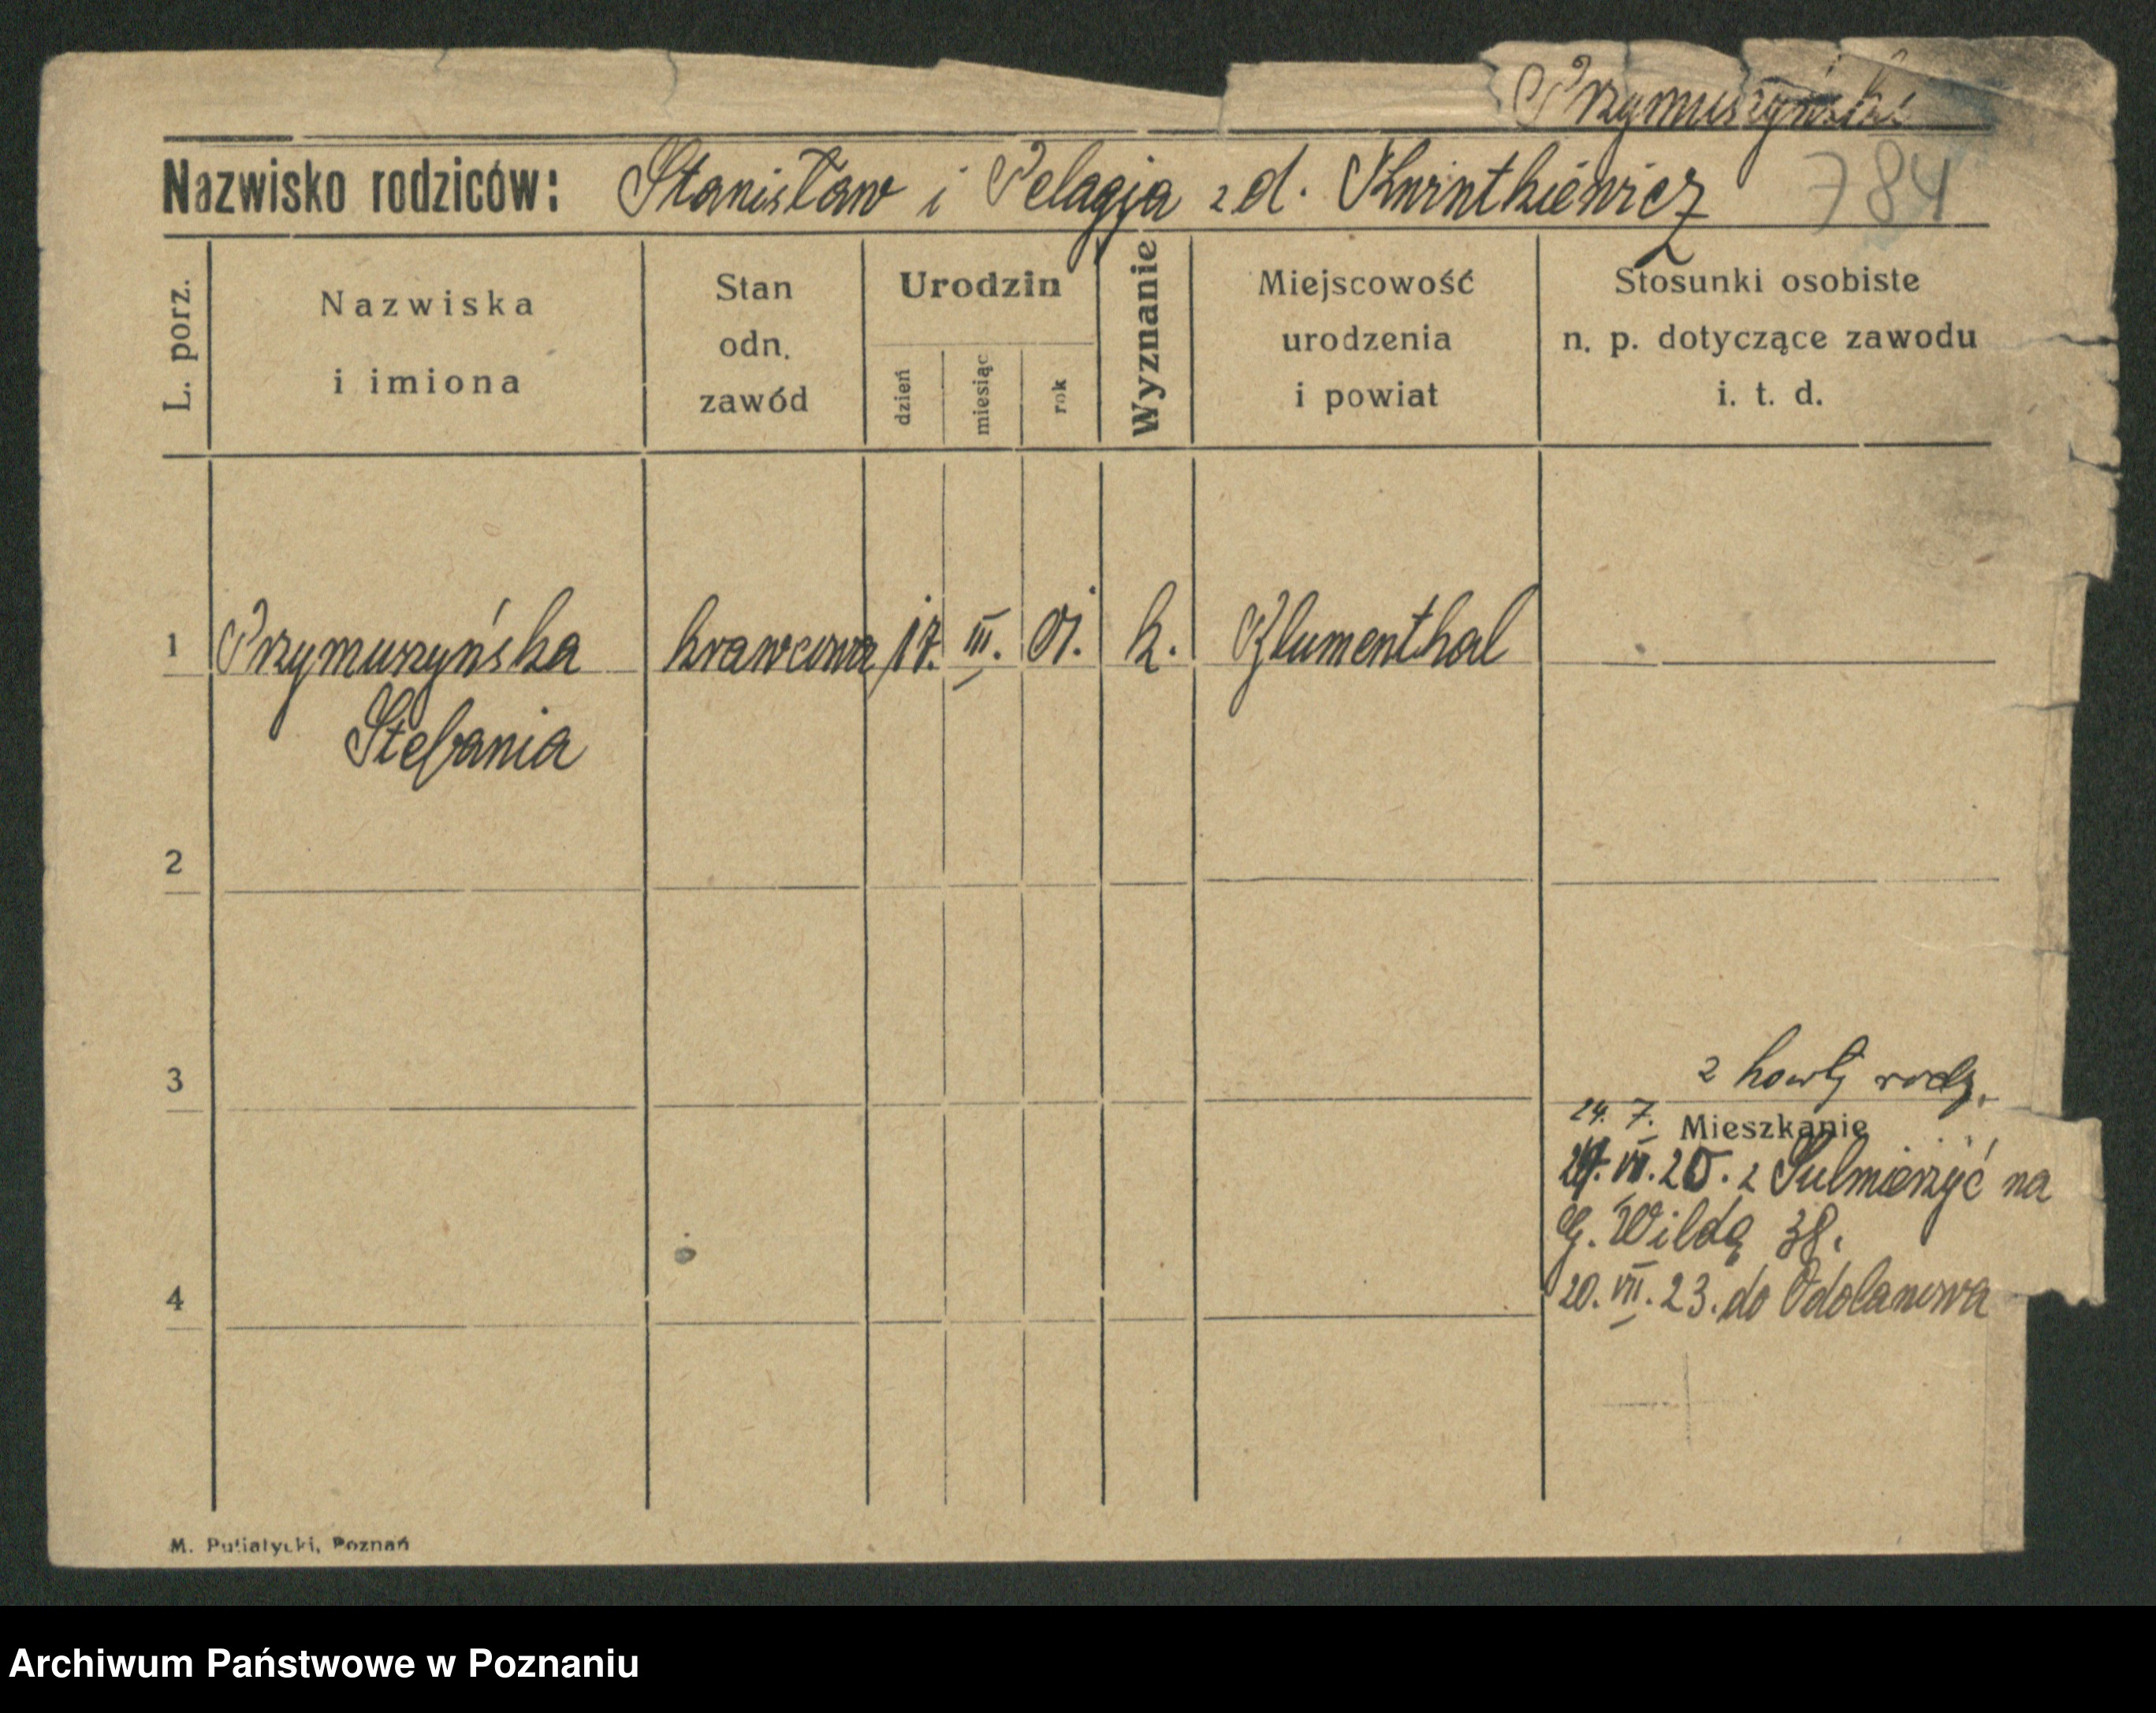 Przymuszyński
Nazwisko rodziców: Stanisław i Pelagja z d. Kwintkiewicz 784
L. porz.
Nazwiska
i imiona
Stan
odn.
zawód
Urodzin
dzień
miesiąc
rok
Wyznanie
Miejscowość
urodzenia
i powiat
Stosunki osobiste
n. p. dotyczące zawodu
i. t. d.
1 Przymuszyńska krawcowa 17. III. 01. k. Blumenthal
Stefania
2
3
z karty rodz.
24. 7. Mieszkanie
VII. 20. z Sulmierzyć na
G. Wildą 38.
4 20. VII. 23. do Odolanowa
M. Putiatycki, Poznań
Archiwum Państwowe w Poznaniu